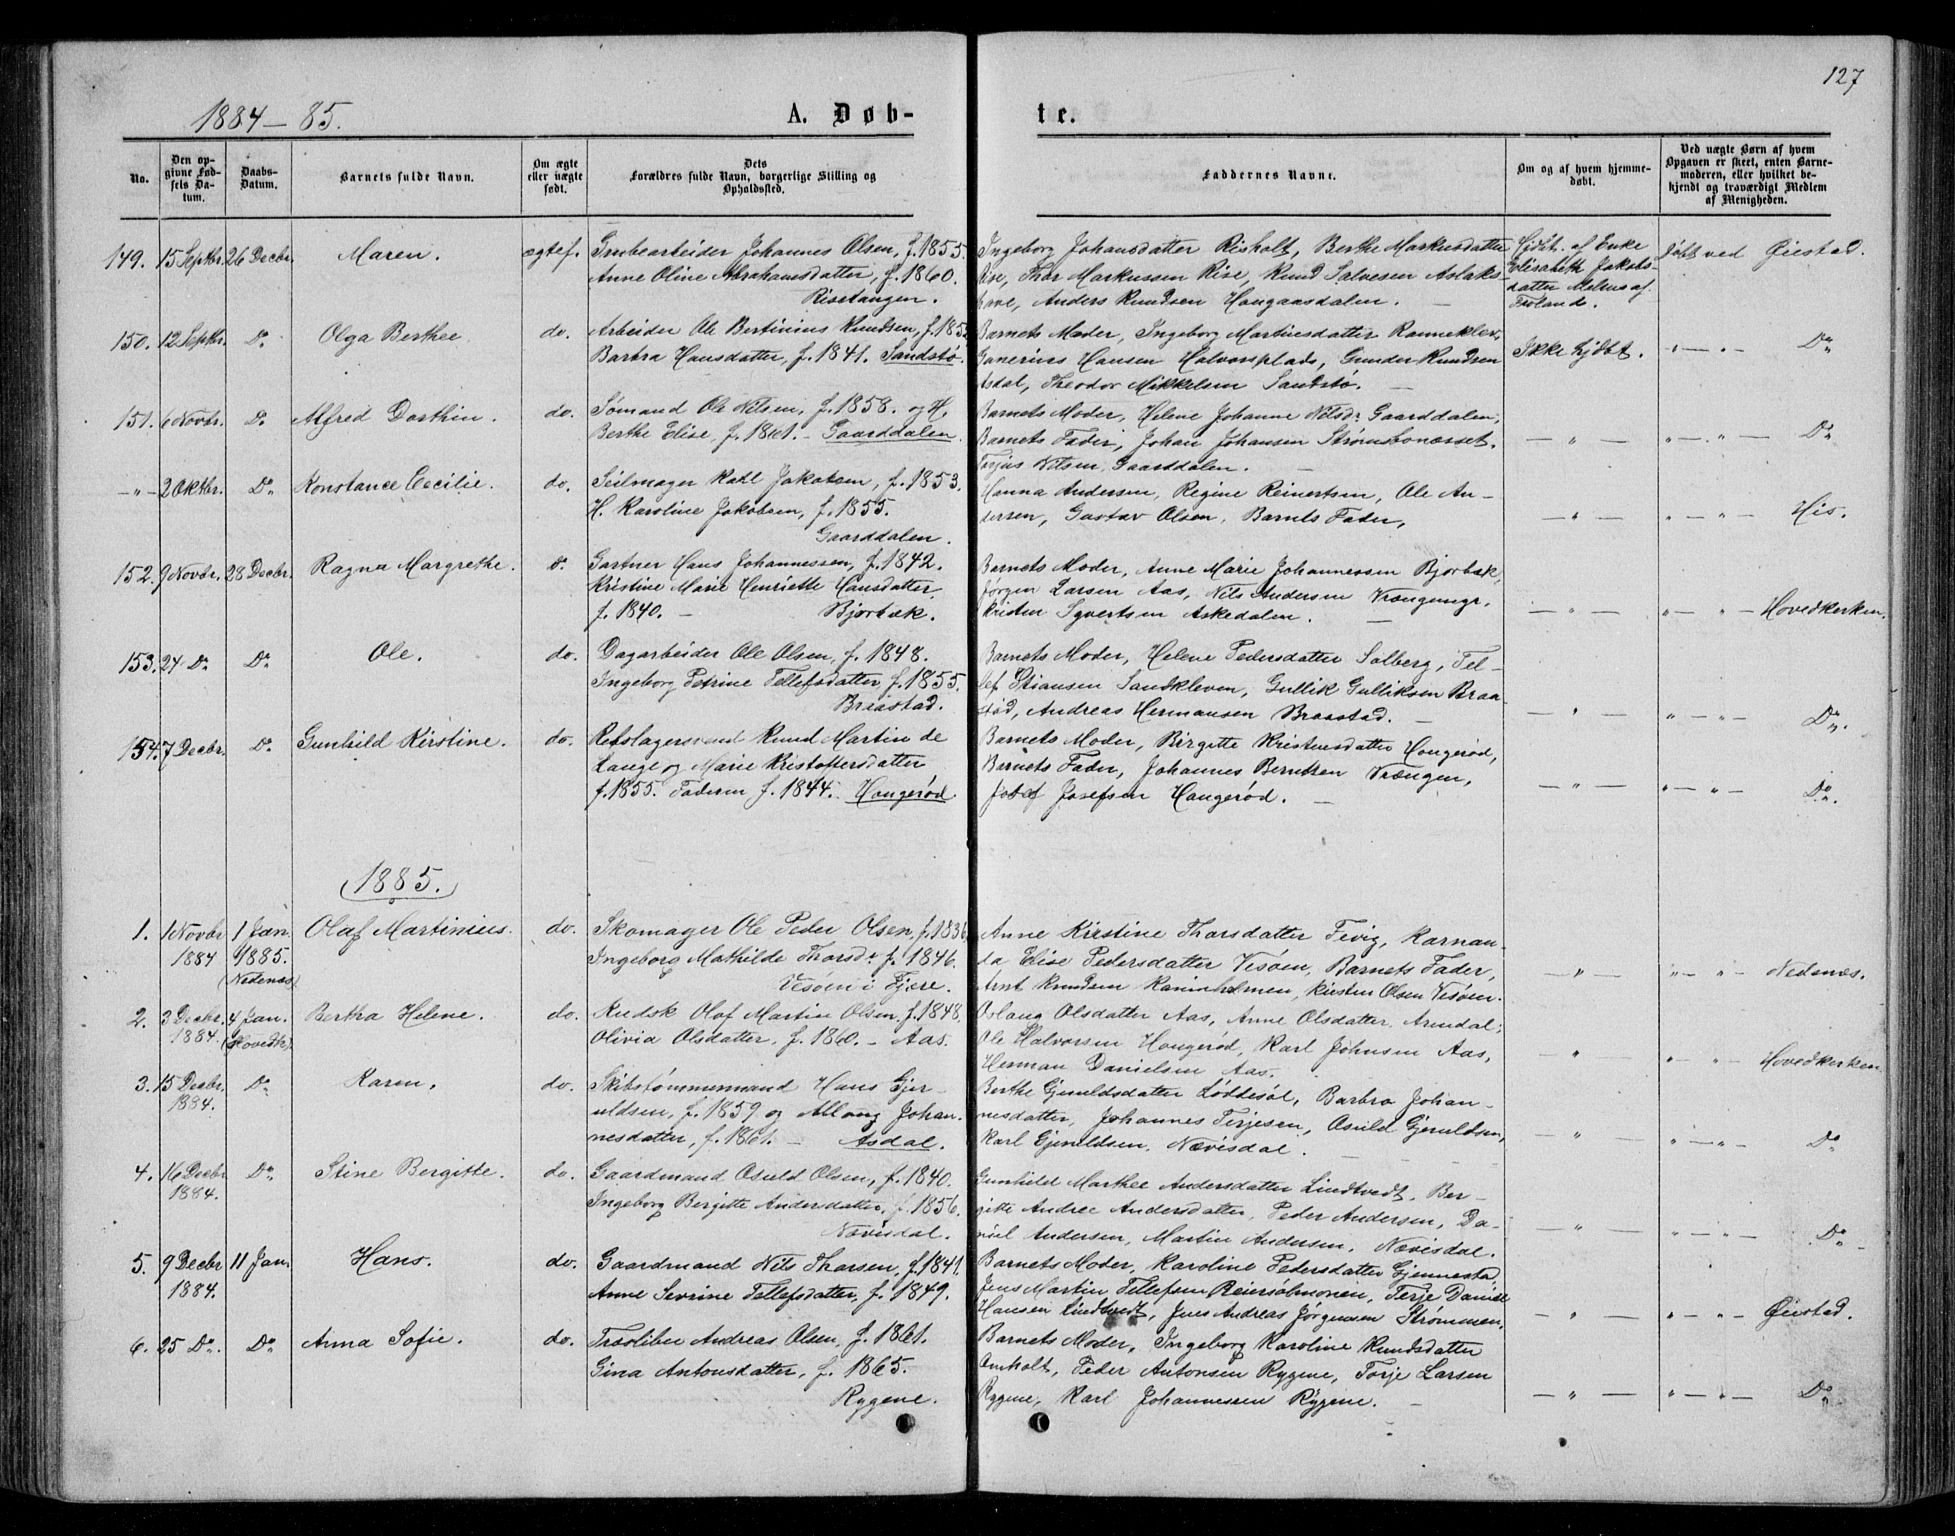 127
1884-85.
A. Døb-
te.
No.
Den op-
givne Fød-
sels Da-
tum.
Daabs-
Datum.
Barnets fulde Navn.
Om ægte
eller uægte
født.
Dets
Forældres fulde Navn, borgerlige Stilling og
Opholdssted.
Faddernes Navne.
Om og af hvem hjemme-
døbt.
Ved uægte Børn af hvem
Opgaven er skeet, enten Barne-
moderen, eller hvilket be-
kjendt og troværdigt Medlem
af Menigheden.
149. 15 Septbr. 26 Decbr. Maren. ægtef.
Grubearbeider Johannes Olsen, f. 1855.
Anne Oline Abrahamsdatter, f. 1860.
Risetangen.
Ingeborg Johansdatter Risholt, Berthe Markusdatter
Rise, Thor Markussen Rise, Knud Salvesen Aslaks-
have, Anders Knudsen Haugaasdalen.
Hjdbt. af Enke
Elisabeth Jakobs-
datter Melens af
Froland.
Døbt ved Øiestad.
150. 12 Septbr. Do. Olga Berthee do.
Arbeider Ole Bertinius Knudsen, f. 185
Barbra Hansdatter, f. 1841. Sandstø.
Barnets Moder, Ingeborg Martinsdatter Ranneklev,
Hansen Halvorsplads, Gunder Knudsen
Asdal, Theodor Mikkelsen Sandstø.
Ikke hjdbt. " — " — Do
151. 6 Novbr. Do Alfred Dorthin. do.
Sømand Ole Nilsen, f. 1858. og H.
Berthe Elise, f. 1861. - Gaarddalen.
Barnets Moder, Helene Johanne Nilsdr. Gaarddalen,
Barnets Fader, Johan Johansen Strømsbonæsset.
Torjus Nilsen, Gaarddalen.
— " — " — " — Do
— " — 2 Oktbr. Do. Konstance Cecilie. do.
Seilmager Karl Jakobsen, f. 1853.
H. Karoline Jakobsen, f. 1855.
Gaarddalen.
Hanna Andersen, Regine Reinertsen, Ole An-
dersen, Gustav Olsen, Barnets Fader,
— " — " — " — His.
152. 9 Novbr. 28 Decbr. Ragna Margrethe. do.
Gartner Hans Johannessen, f. 1842.
Kristine Marie Henriette Hansdatter,
f. 1840. — Bjorbæk.
Barnets Moder, Anne Marie Johannessen Bjorbæk,
Jørgen Larsen Aas, Nils Andersen Vrængengr.
Kristen Syvertsen Askedalen.
— " — " — " — Hovedkirken.
153. 24 Do. Do. Ole. do.
Dagarbeider Ole Olsen, f. 1848.
Ingeborg Petrine Tellefsdatter, f. 1855.
Braastad.
Barnets Moder, Helene Pedersdatter Solberg, Tel-
lef Stiansen Sandkleven, Gullik Gulliksen Braa-
stød, Andreas Hermansen Braastad.
— " — " — " — Do.
154. 7 Decbr. Do. Gunhild Kirstine. do.
Rebslagersvend Knud Martin de
Lange og Marie Kristoffersdatter
f. 1855. Faderen f. 1844. Haugerød.
Barnets Moder, Birgitte Kristensdatter Haugerød,
Barnets Fader, Johannes Berntsen Vrængen,
Josef Josefsen Haugerød.
— " — " — " — Do.
1885.
1. 1 Novbr 1 Jan. Olaf Martinius. do.
1884 1885.
(Nedenæs)
Skomager Ole Peder Olsen, f. 1836
Ingeborg Mathilde Thorsdr. f. 1846.
Vesøen i Fjære.
Anne Kirstine Thorsdatter Fevig, Karnan-
da Elise Pedersdatter Vesøen, Barnets Fader,
Arnt Knudsen Raninholmen, Kirsten Olsen Vesøen.
— " — " — " — Nedenæs.
2. 3 Decbr. 4 Jan. Bertha Helene. do.
1884. (Hovedk.)
Kudsk Olaf Martin Olsen, f. 1848.
Olivia Olsdatter, f. 1860. — Aas.
Aslaug Olsdatter Aas, Anne Olsdatter, Arendal;
Ole Halvorsen Haugerød, Karl Johnsen Aas,
Herman Danielsen Aas.
" " — " — Hovedkirken
3. 15 Decbr. Do. Karen. do.
1884.
Skibstømmermand Hans Gjer-
uldsen, f. 1859 og Allaug Johan-
nesdatter, f. 1861. — Asdal.
Berthe Gjeruldsdatter Løddesøl, Barbra Johan-
nesdatter, Johannes Terjesen, Osuld Gjeruldsen,
Karl Gjeruldsen, Nævisdal.
— " — " — " — Do
4. 16 Decbr Do. Stine Bergitte. do.
1884.
Gaardmand Osuld Olsen, f. 1840.
Ingeborg Birgitte Andersdatter, f. 1856.
Nævisdal.
Gunhild Marthee Andersdatter Lindtvedt, Ber-
gitte Andree Andersdatter, Peder Andersen, Da-
niel Andersen, Martin Andersen, Nævisdal.
— " — " — " — Do
5. 9 Decbr 11 Jan. Hans. do.
1884.
Gaardmand Nils Thorsen, f. 1841.
Anne Sevrine Tellefsdatter, f. 1849.
Barnets Moder, Karoline Pedersdatter Gjennestad,
Jens Martin Tellefsen Reiersølmonen, Terje Daniel
Hansen Lindtvedt, Jens Andreas Jørgensen Strømmen.
— " — " — " — Øiestad.
6. 25 Do. Do Anna Sofie. do.
Træsliber Andreas Olsen, f. 1861.
Gina Antonsdatter, f. 1865.
Rygene.
Barnets Moder, Ingeborg Karoline Knudsdatter
Omholt, Peder Antonsen Rygene, Torje Larsen
Rygene, Karl Johannessen Rygene.
— " — " — " — Do